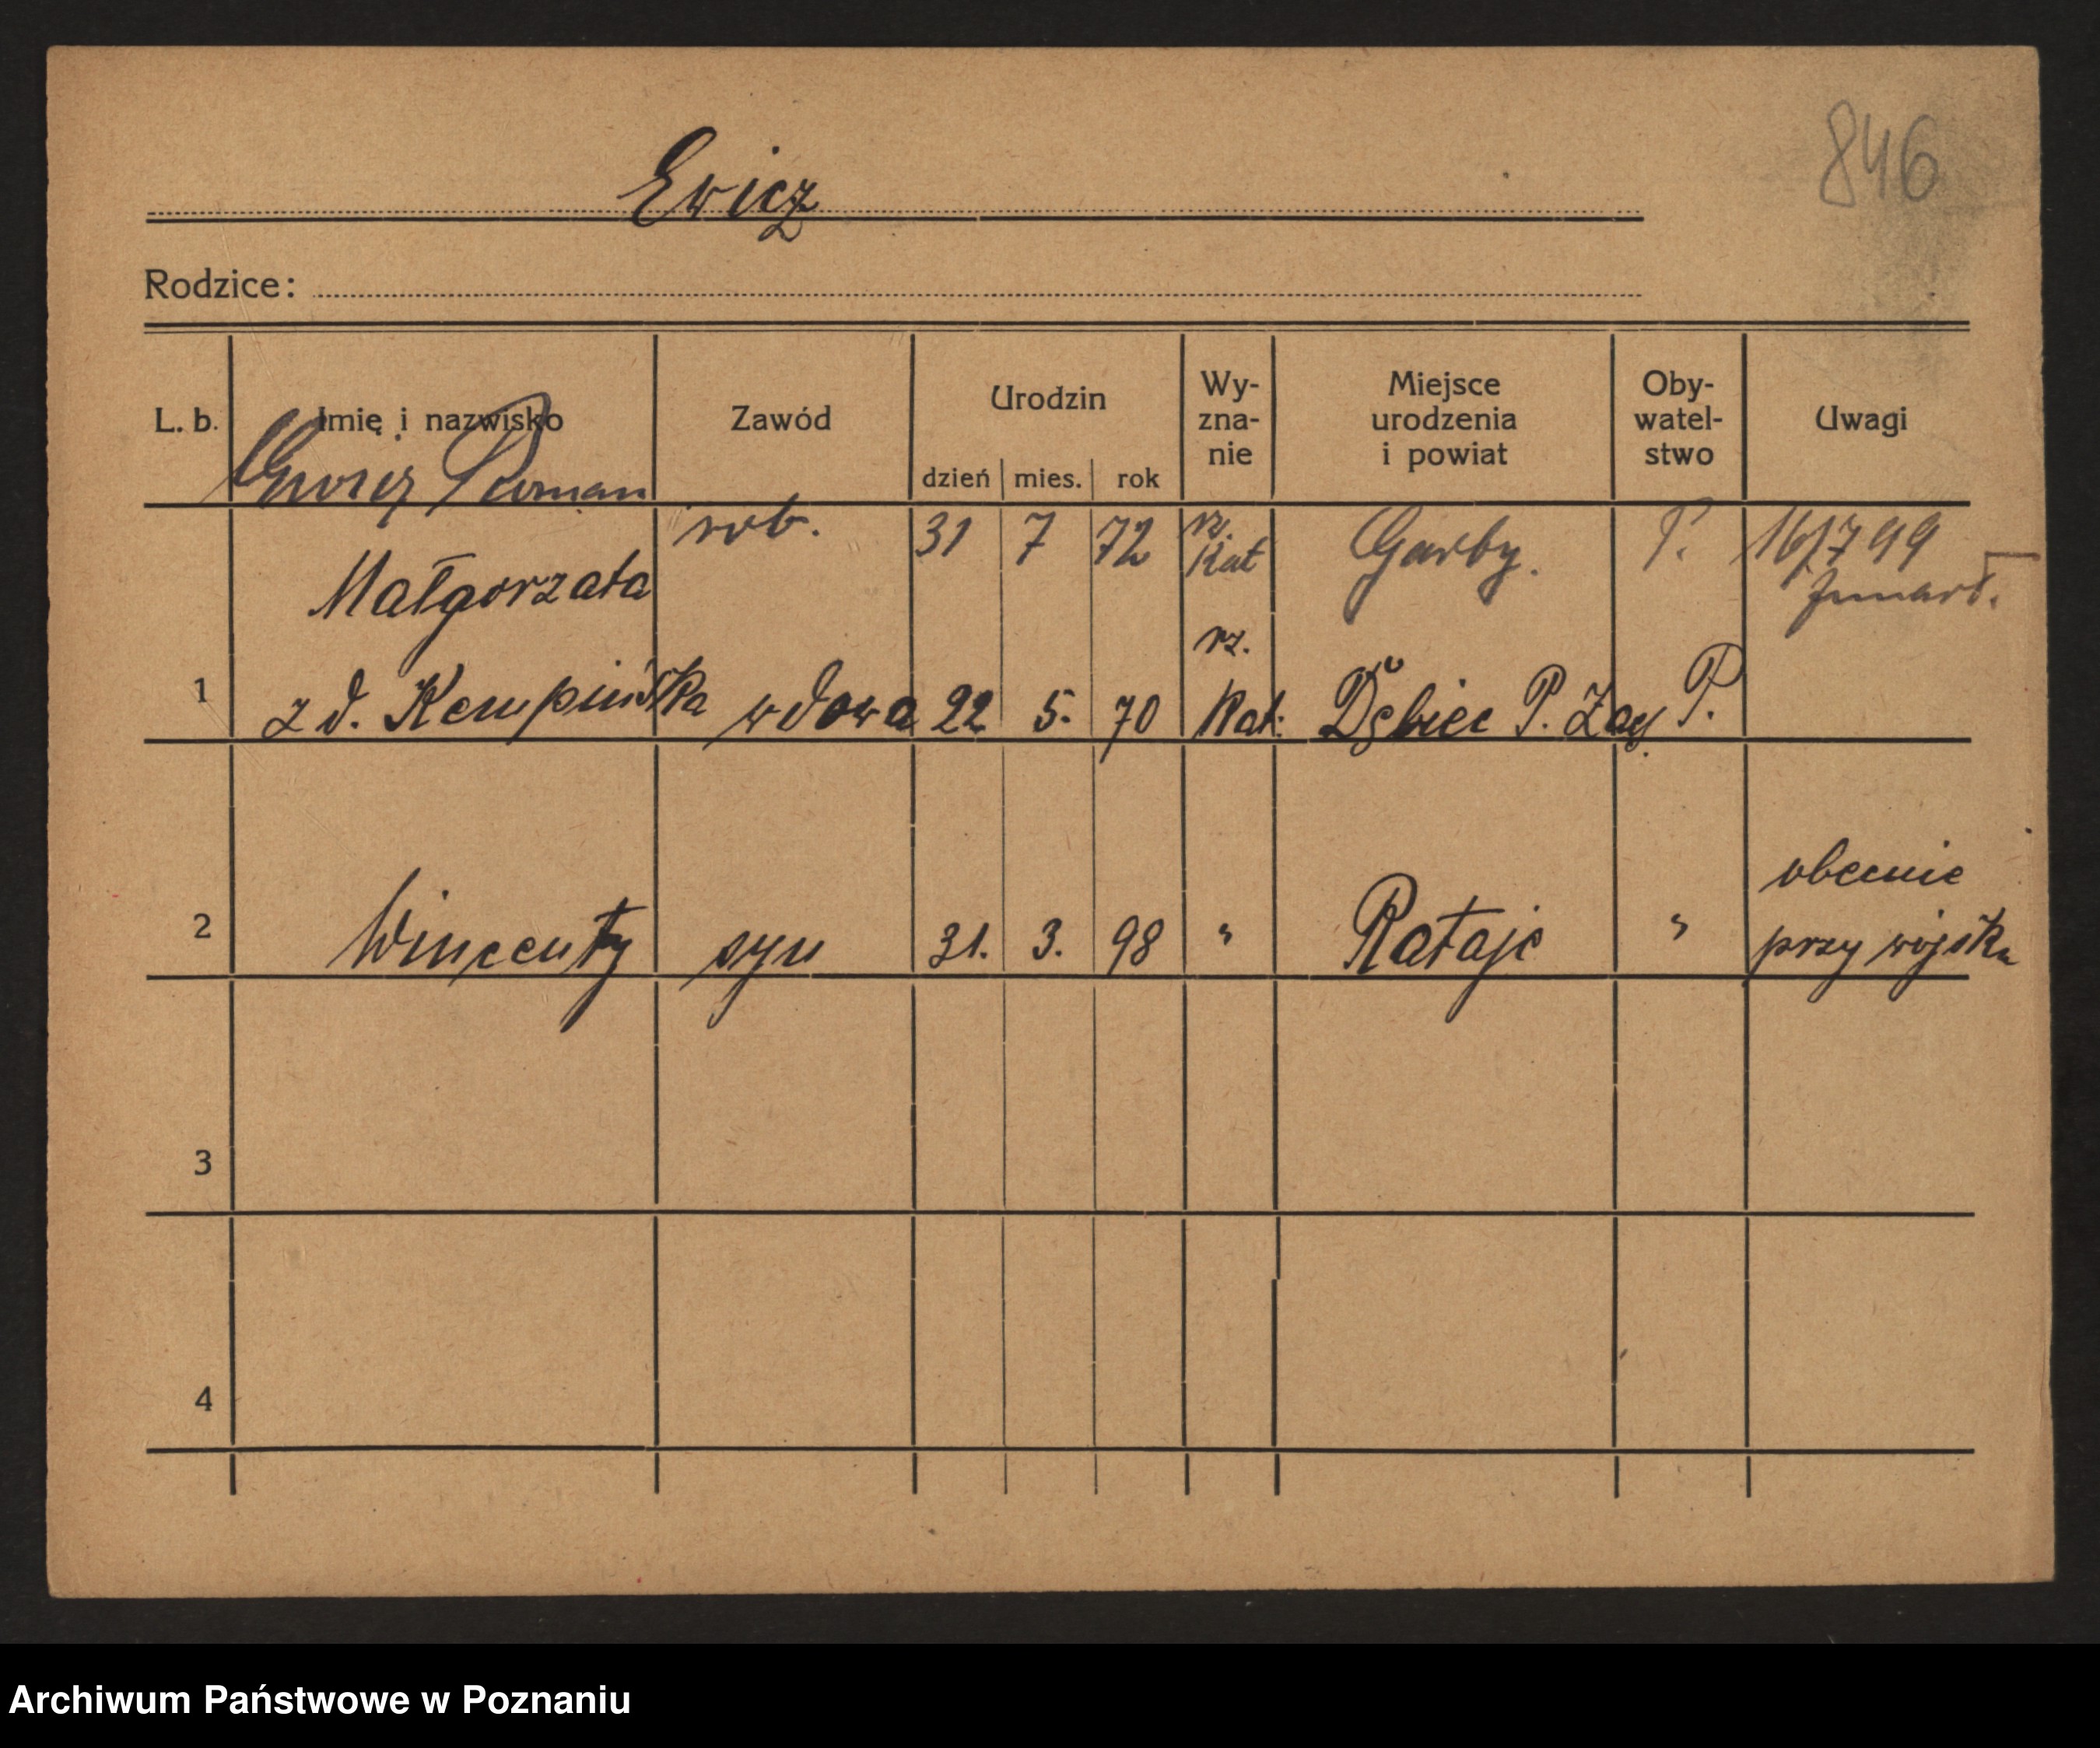 846
Ewicz
Rodzice:
L. b.
Imię i nazwisko
Zawód
Urodzin
dzień mies. rok
Wy-
zna-
nie
Miejsce
urodzenia
i powiat
Oby-
watel-
stwo
Uwagi
Roman
rob. 31 7 72 rz. Kat Garby. P. 16/7 99
zmarł.
1 Małgorzata
z d. Kempińska wdowa 22 5. 70 rz. Kat. Dębiec P. P.
2 Wincenty syn 31. 3. 98 " Rataje " obecnie
przy wojsku
3
4
Archiwum Państwowe w Poznaniu